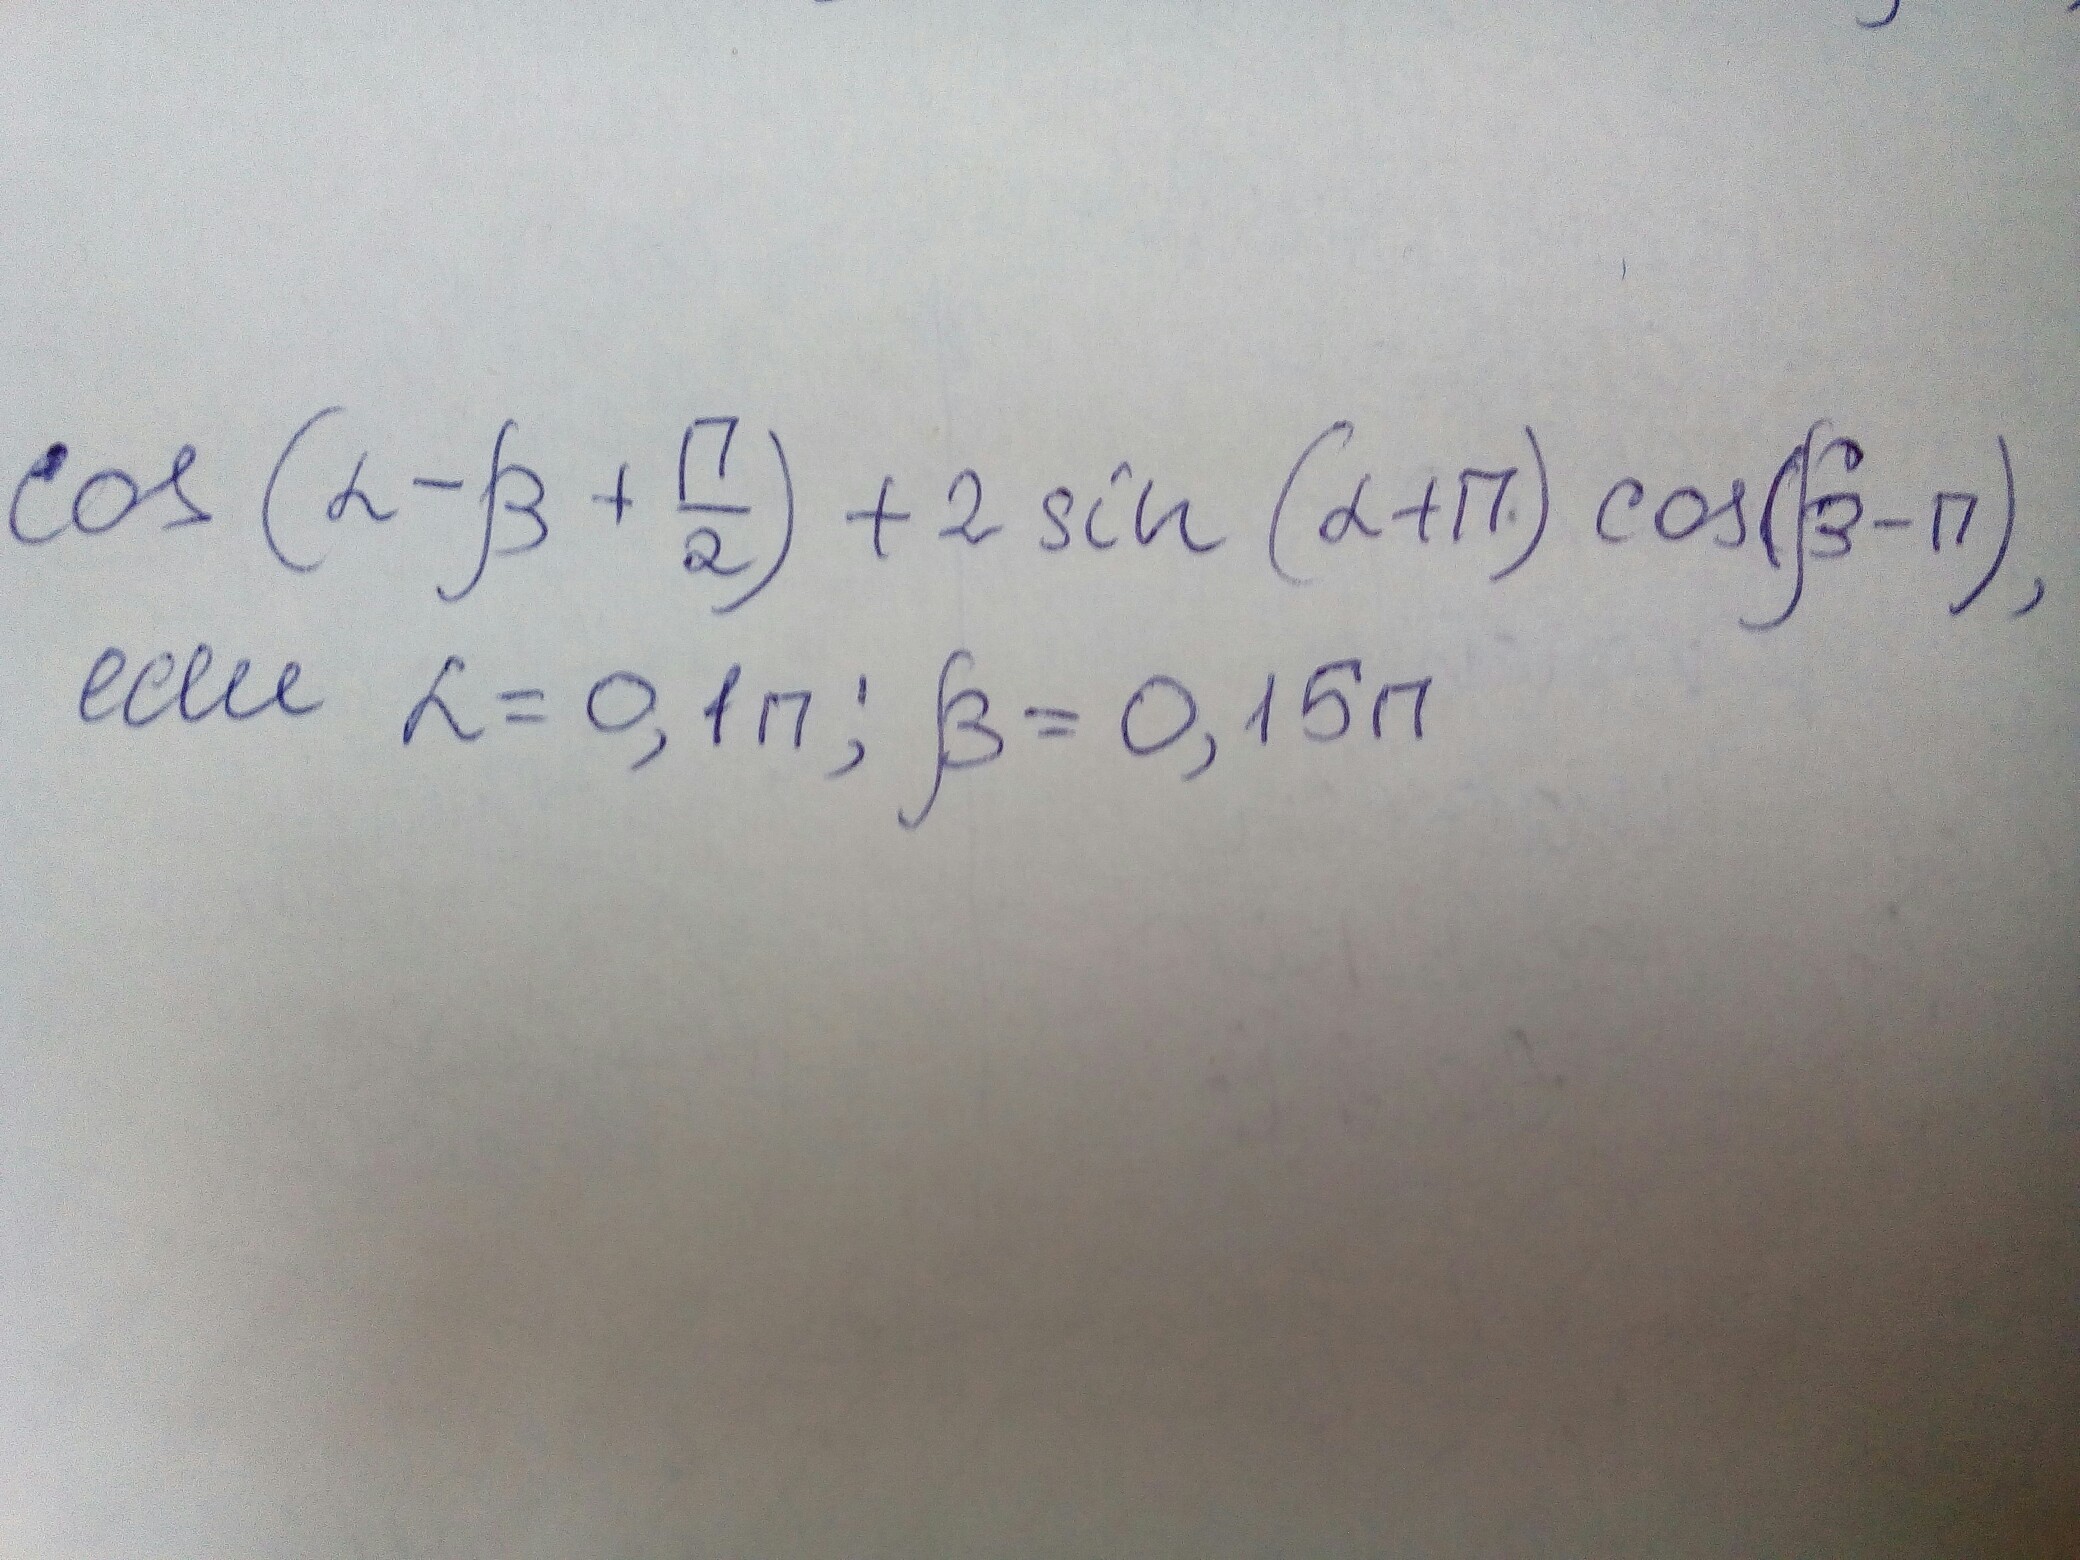 cos (α - β + П/2) + 2 sin (α + П) cos(β - П),
если α = 0,1П; β = 0,15П